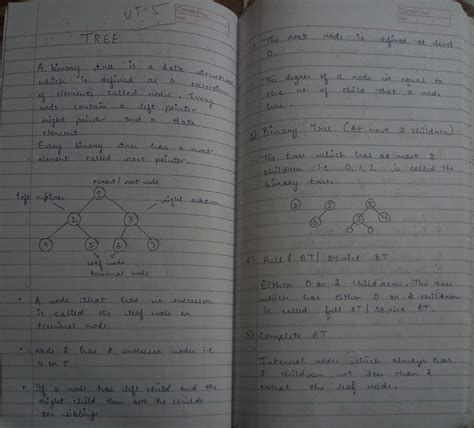 UT-5
TREE
A binary tree is a data structure
which is defined as a collection
of elements called nodes. Every
node contain a left pointer,
right pointer and a data
element.
Every binary tree has a root
element called root pointer.
parent / root node
left subtree
right subtree
1
2
3
4
5
6
7
leaf node
terminal node
• A node that has no successor
is called the leaf node or
terminal node.
• Node 2 has 2 successor nodes i.e
4 or 5.
• If a node has left child and the
right child then both the childs
are siblings.
• The root node is defined at level
0.
• The degree of a node is equal to
the no. of child that a node
has.
Binary Tree (At most 2 children)
The tree which has at most 2
children i.e 0, 1, 2 is called the
binary tree.
2) Full BT / Strict BT
Either 0 or 2 children. The tree
which has either 0 or 2 children
is called full BT / Strict BT.
3) Complete BT
Internal nodes which always has
2 children not less than 2
except the leaf node.